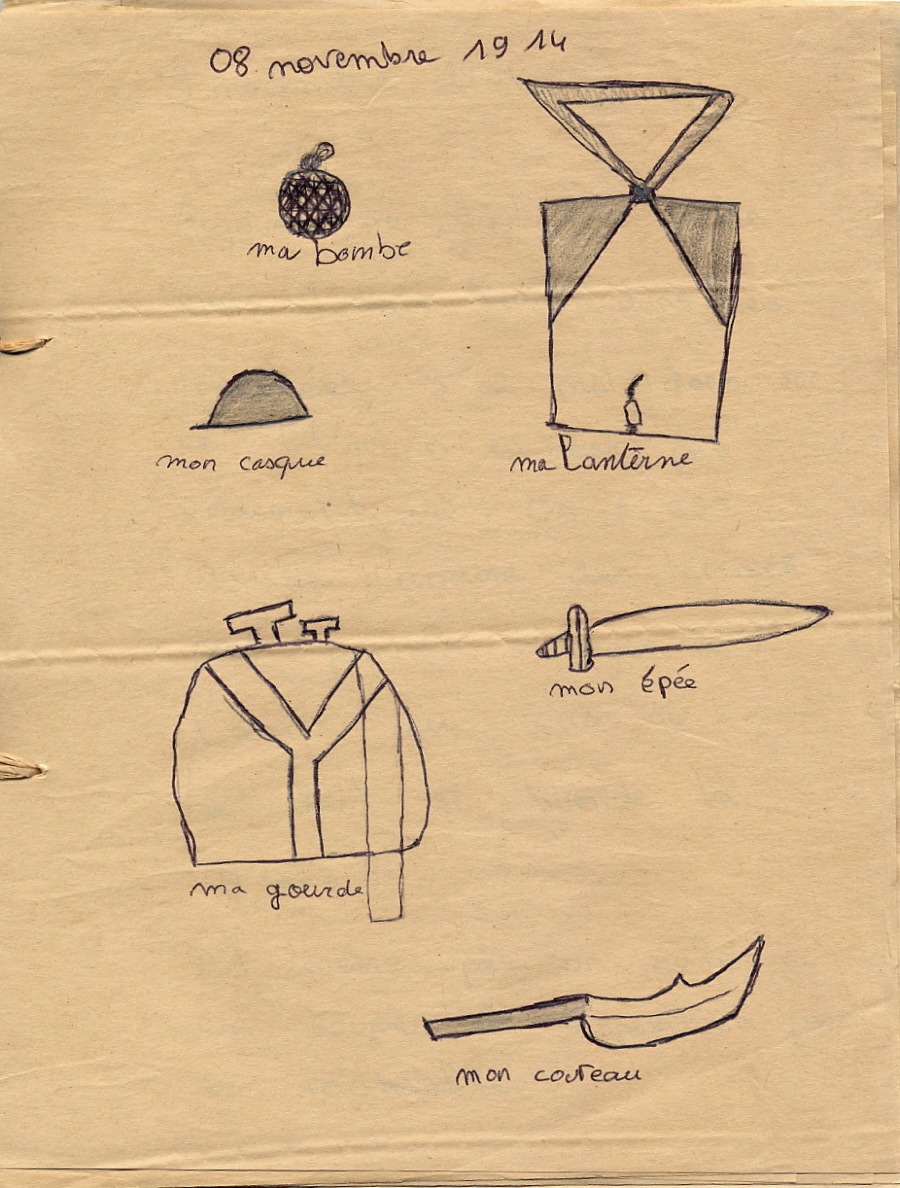 08 novembre 1914
ma bombe
mon casque
ma Lanterne
mon épée
ma gourde
mon couteau